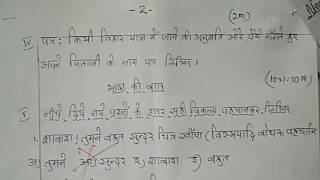 -2-
(2m)
IV पत्र: किसी विहार यात्रा में जाने की अनुमति और पैसे माँगते हुए
अपने पिताजी के नाम पत्र लिखिए।
भाषा की बात
(10x1=10m)
I नीचे दिये गये प्रश्नों के उत्तर सही विकल्प पहचानकर लिखिए
1. शाबाश! तुमने बहुत सुन्दर चित्र खींचा (विस्मयादि बोधक पहचानिए
अ) तुमने आ) सुन्दर इ) शाबाश ई) बहुत